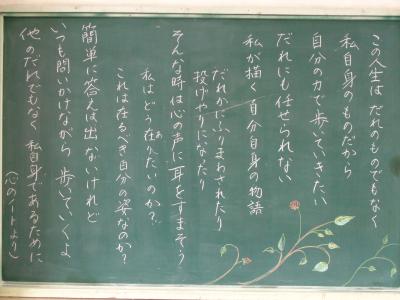 この人生は だれのものでもなく
私自身のものだから
自分の力で歩いていきたい
だれにも任せられない
私が描く 自分自身の物語
だれかにふりまわされたり
投げやりになったり
そんな時は心の声に耳をすまそう
私はどう在りたいのか?
これは在るべき自分の姿なのか?
簡単に答えは出ないけれど
いつも問いかけながら 歩いていくよ
他のだれでもなく 私自身であるために
(心のノートより)